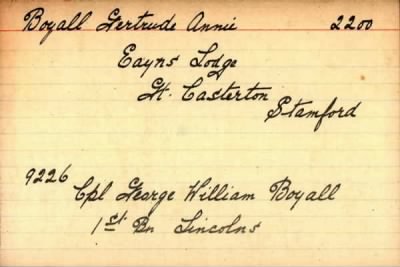 Boyall Gertrude Annie 2200
Eayns Lodge
Gt. Casterton
Stamford
9226
Cpl George William Boyall
1st Bn Lincolns